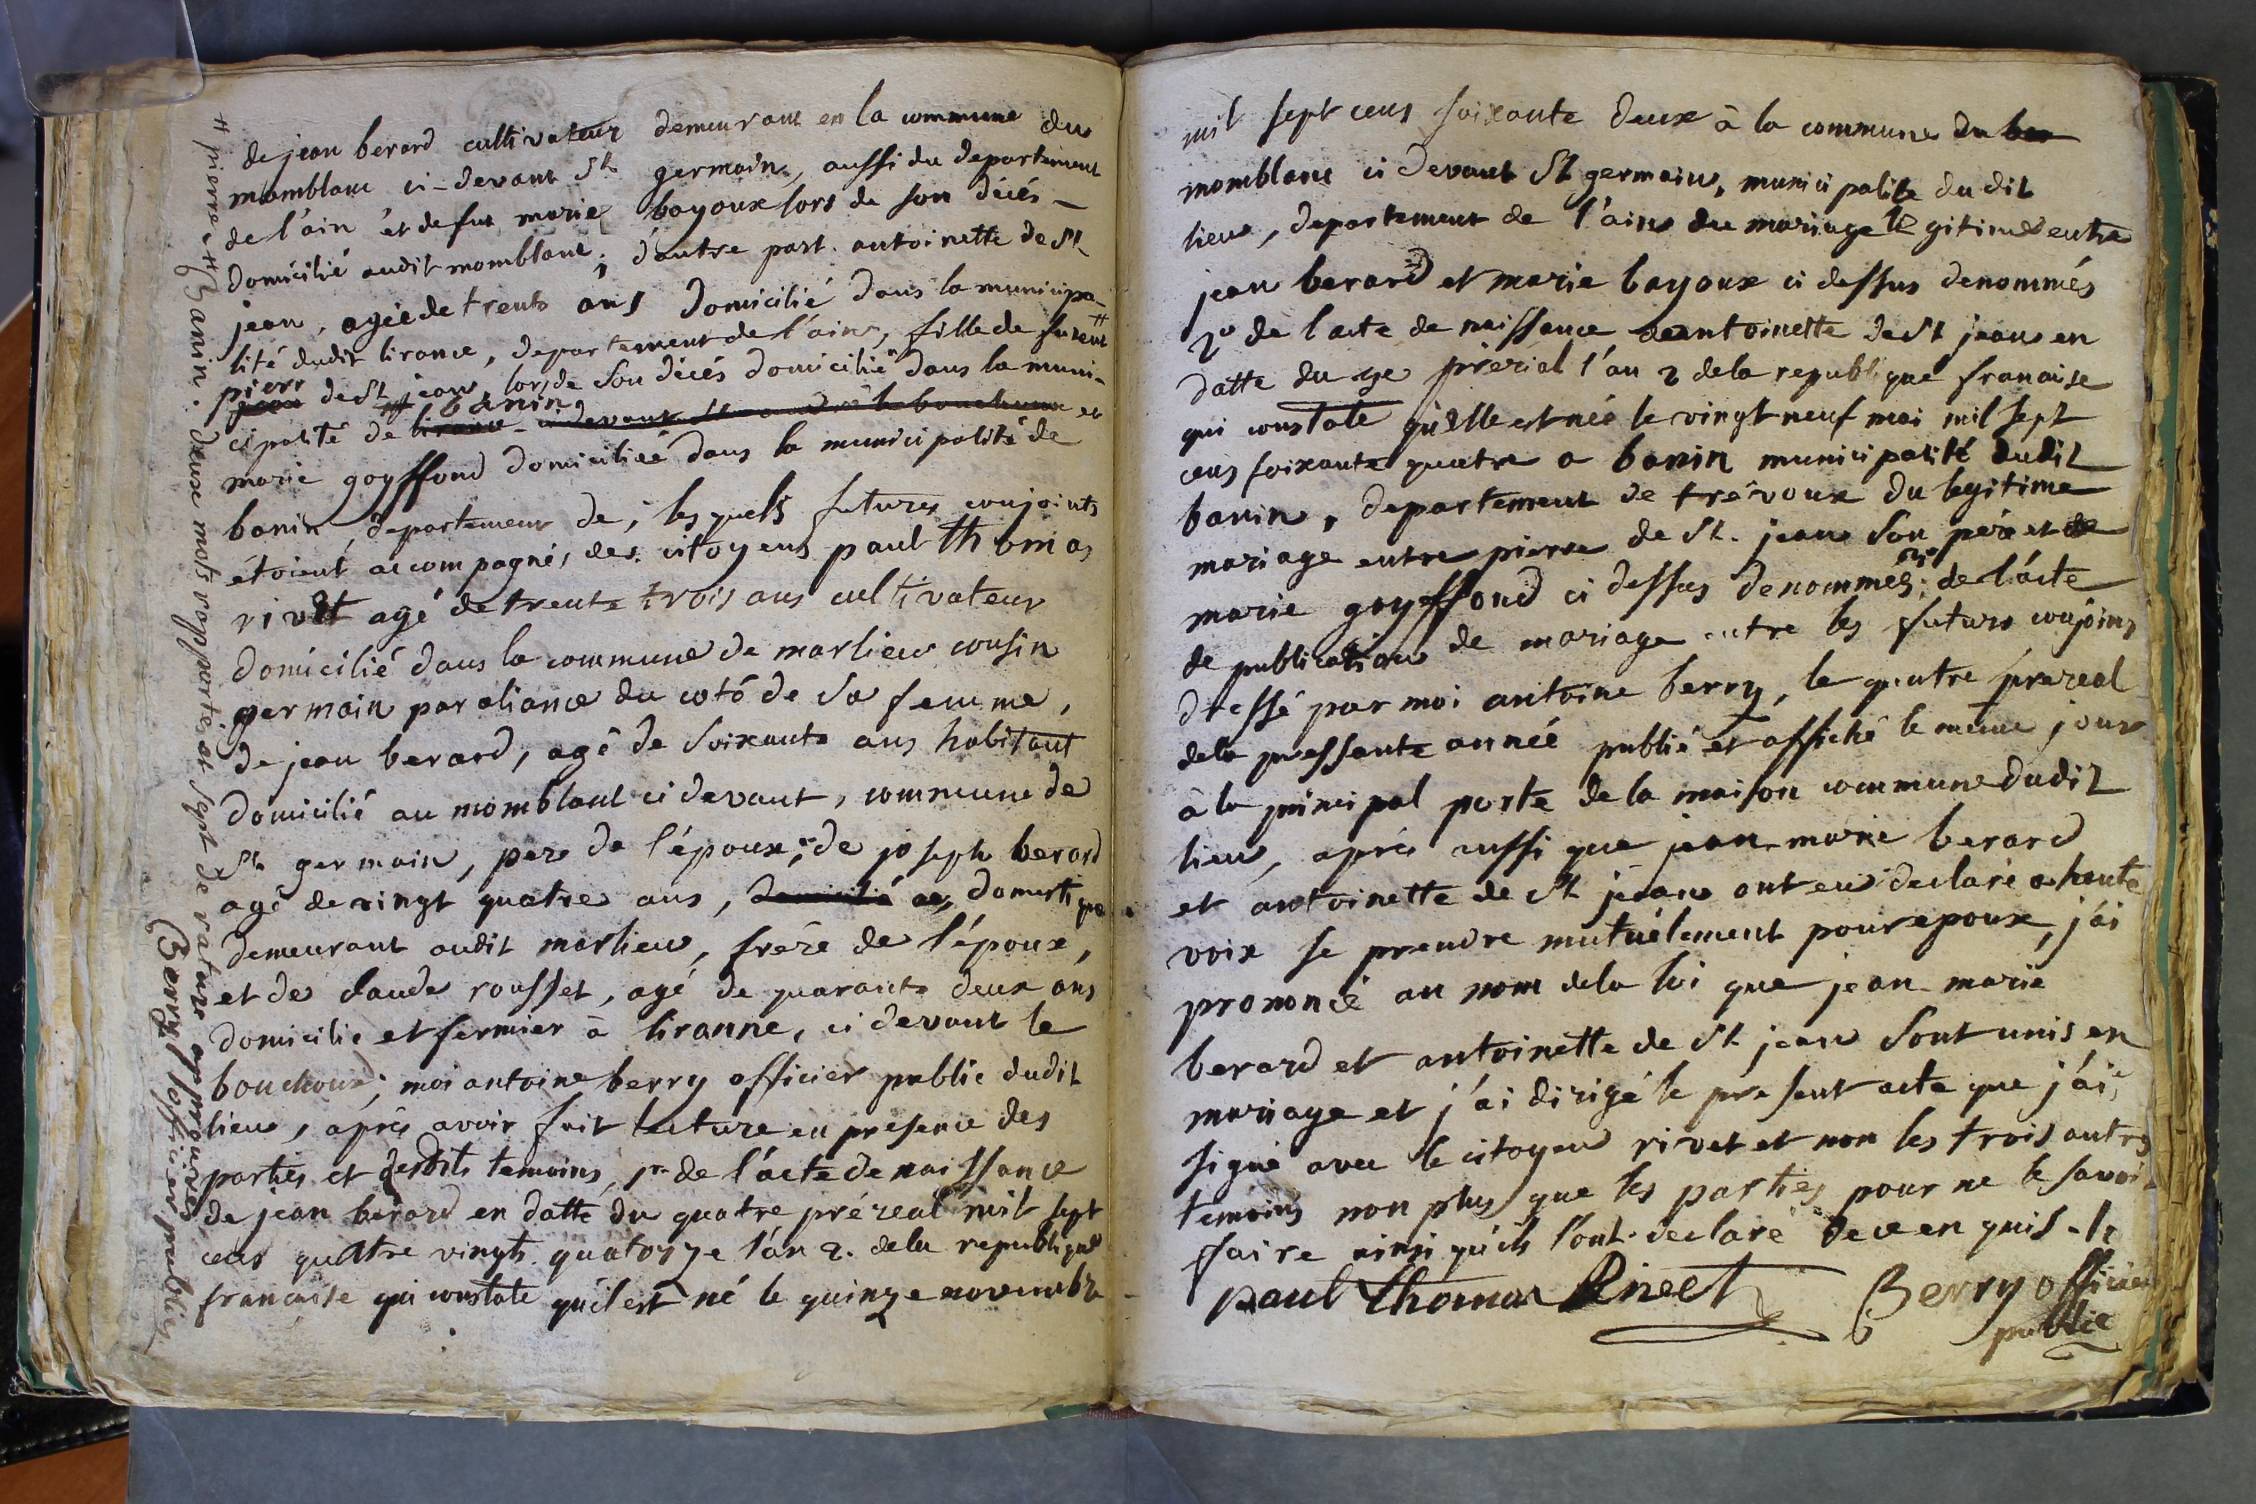 de jean berard cultivateur demeurant en la commune du
momblanc ci-devant St germain, aussi du departement
de l'ain et de fut marie bayoux lors de son décés -
domicilié audit momblanc; d'autre part antoinette de St
jean, agée de trente ans domicilié dans la municipa-
lité dudit lirance, departement de l'ain, fille de furent #
pierr
jean de St jean, lors de son décés domicilié dans la muni-
banin
cipalité de lirance ci devant St le bouchoux et
marie goyffond domiciliéé dans la municipalité de
banin, departement de, lesquels futures conjoints
étoient accompagnés, des citoyens paul thomas
rivet agé de trente trois ans cultivateur
domicilié dans la commune de marlieu cousin
germain par aliance du coté de sa femme,
de jean berard, agé de soixante ans habitant
domicilié au momblant ci devant, commune de
St germain, pere de l'époux; de joseph berard
agé de vingt quatre ans, domicilié domestique
demeurant audit marlieu, frère de l'époux,
et de claude rousset, agé de quarante deux ans
domicilie et fermier à liranne, ci devant le
bouchoux; moi antoine berry officier public dudit
lieu, aprés avoir fait lecture en presence des
parties et desdits temoins, 1er de l'acte de naissance
de jean bérard en datté du quatre prézeal mil sept
cens quattre vingts quatorze l'an 2. de la republique
francaise qui constate qu'il est né le quinze novembre
# pierre # Banin. deux mots rapportés et sept de rature approuvés
Berry officier public
mil sept cens soixante deux à la commune du ber
momblanc ci devant St germain, municipalité dudit
lieu, departement de l'ain du mariage légitime entre
jean berard et marie bayoux ci dessus denommés
2º de l'acte de naissance de antoinette de St jean en
datte du 4e prèrial l'an 2 de la republique franaise
qui constate qu'elle est née le vingt neuf mai mil sept
cens soixante quatre a banin municipalité dudit
banin, departement de trévoux du legitime
mariage entre pierre de St. jean son père et de
marie goyffond ci dessus denommés; 3º de l'acte
de publication de mariage entre les futurs conjoins
dressé par moi antoine berry, le quatre prezeal
de la pressante année publié et affiché le même jour
à la principal porte de la maison commune dudit
lieu, aprés aussi que jean-marie berard
et antoinette de St jean ont eu declaré a haute
voix se prendre mutuélement pour epoux, j'ai
prononcé au nom de la loi que jean-marie
berard et antoinette de St jean sont unis en
mariage et j'ai dirigé le present acte que j'ai
signé avec le citoyen rivet et non les trois autres
temoins non plus que les parties pour ne le savoir
faire ainsi qu'ils l'ont declaré de ce enquis. /.
paul Thomas Riveet Berry officier
public